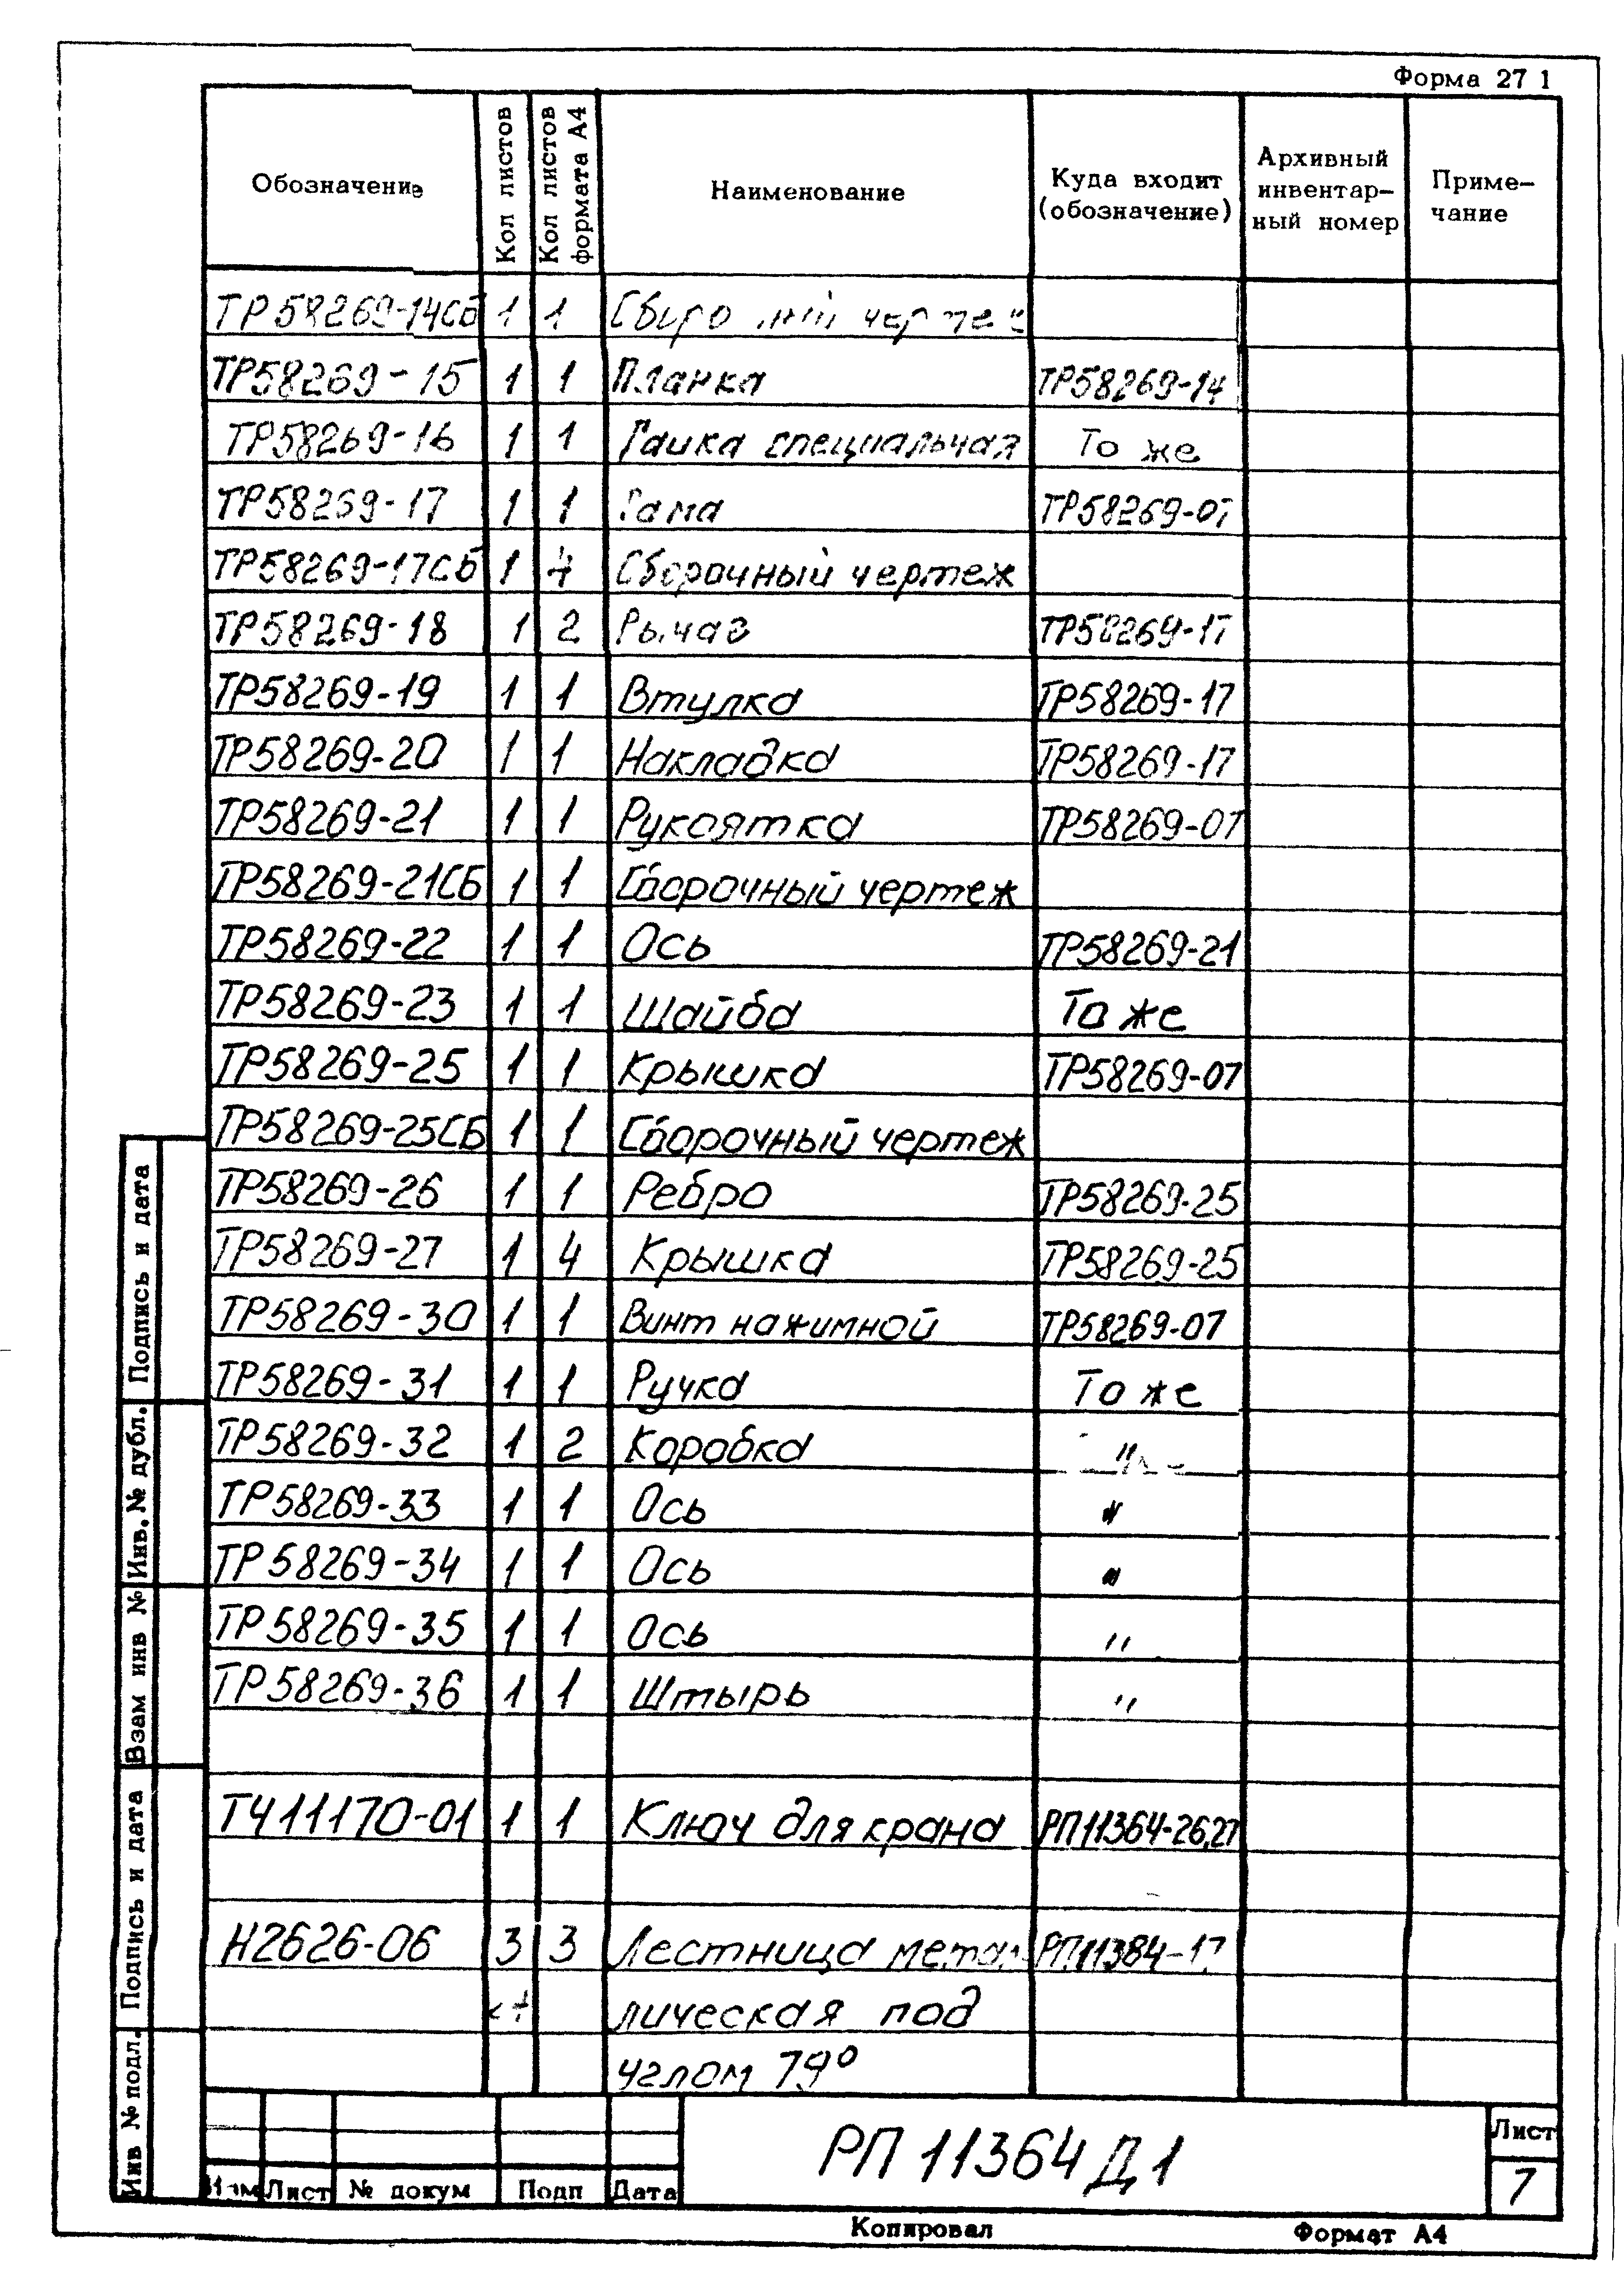 Форма 27 1
Обозначение | Кол листов | Кол листов формата А4 | Наименование | Куда входит (обозначение) | Архивный инвентар-ный номер | Приме-чание
ТР58269-14СБ 1 1
ТР58269-15 1 1 Планка ТР58269-14
ТР58269-16 1 1 Гайка специальная То же
ТР58269-17 1 1 Рама ТР58269-07
ТР58269-17СБ 1 4 Сборочный чертеж
ТР58269-18 1 2 Рычаг ТР58269-17
ТР58269-19 1 1 Втулка ТР58269-17
ТР58269-20 1 1 Накладка ТР58269-17
ТР58269-21 1 1 Рукоятка ТР58269-07
ТР58269-21СБ 1 1 Сборочный чертеж
ТР58269-22 1 1 Ось ТР58269-21
ТР58269-23 1 1 Шайба То же
ТР58269-25 1 1 Крышка ТР58269-07
ТР58269-25СБ 1 1 Сборочный чертеж
ТР58269-26 1 1 Ребро ТР58269-25
ТР58269-27 1 4 Крышка ТР58269-25
ТР58269-30 1 1 Винт нажимной ТР58269-07
ТР58269-31 1 1 Ручка То же
ТР58269-32 1 2 Коробка "
ТР58269-33 1 1 Ось "
ТР58269-34 1 1 Ось "
ТР58269-35 1 1 Ось "
ТР58269-36 1 1 Штырь "
ТЧ11170-01 1 1 Ключ для крана РП11364-26,27
Н2626-06 3 3 Лестница метал РП11384-17
лическая под
углом 79°
Подпись и дата
Инв. № дубл.
Взам инв №
Подпись и дата
Инв № подл.
Изм Лист № докум Подп Дата
РП 11364 Д1
Лист
7
Копировал Формат А4